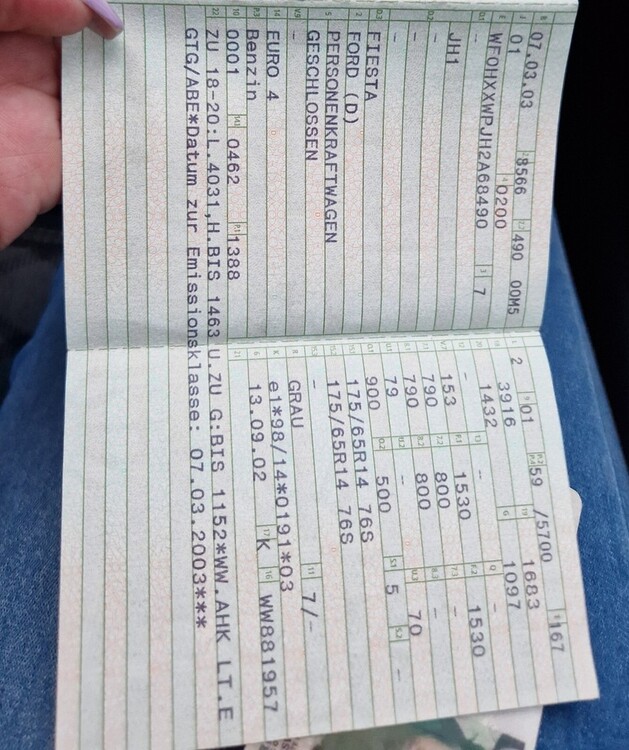 07.03.03 8566 490 00M5
01 0200
WF0HXXWPJH2A68490 7
-
JH1
-
-
-
FIESTA
FORD (D)
PERSONENKRAFTWAGEN
GESCHLOSSEN
-
EURO 4
Benzin
0001 0462 1388
2 01 59 /5700 167
3916 1683
1432 1097
- - -
153 1530 1530
790 800 -
790 800 -
79 - 70
900 500 5 -
175/65R14 76S
175/65R14 76S
-
GRAU 7/-
e1*98/14*0191*03
13.09.02 K WW881957
ZU 18-20:L.4031,H.BIS 1463 U.ZU G:BIS 1152*WW.AHK LT.E
GTG/ABE*Datum zur Emissionsklasse: 07.03.2003***